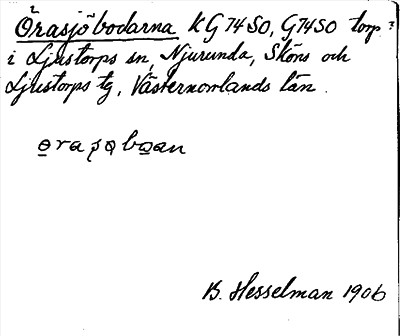 Örasjöbodarna KG74SO, G74SO torp?
i Ljustorps sn, Njurunda, Sköns och
Ljustorps tg, Västernorrlands län.
o̲raʂo̲bo̲an
B. Hesselman 1906